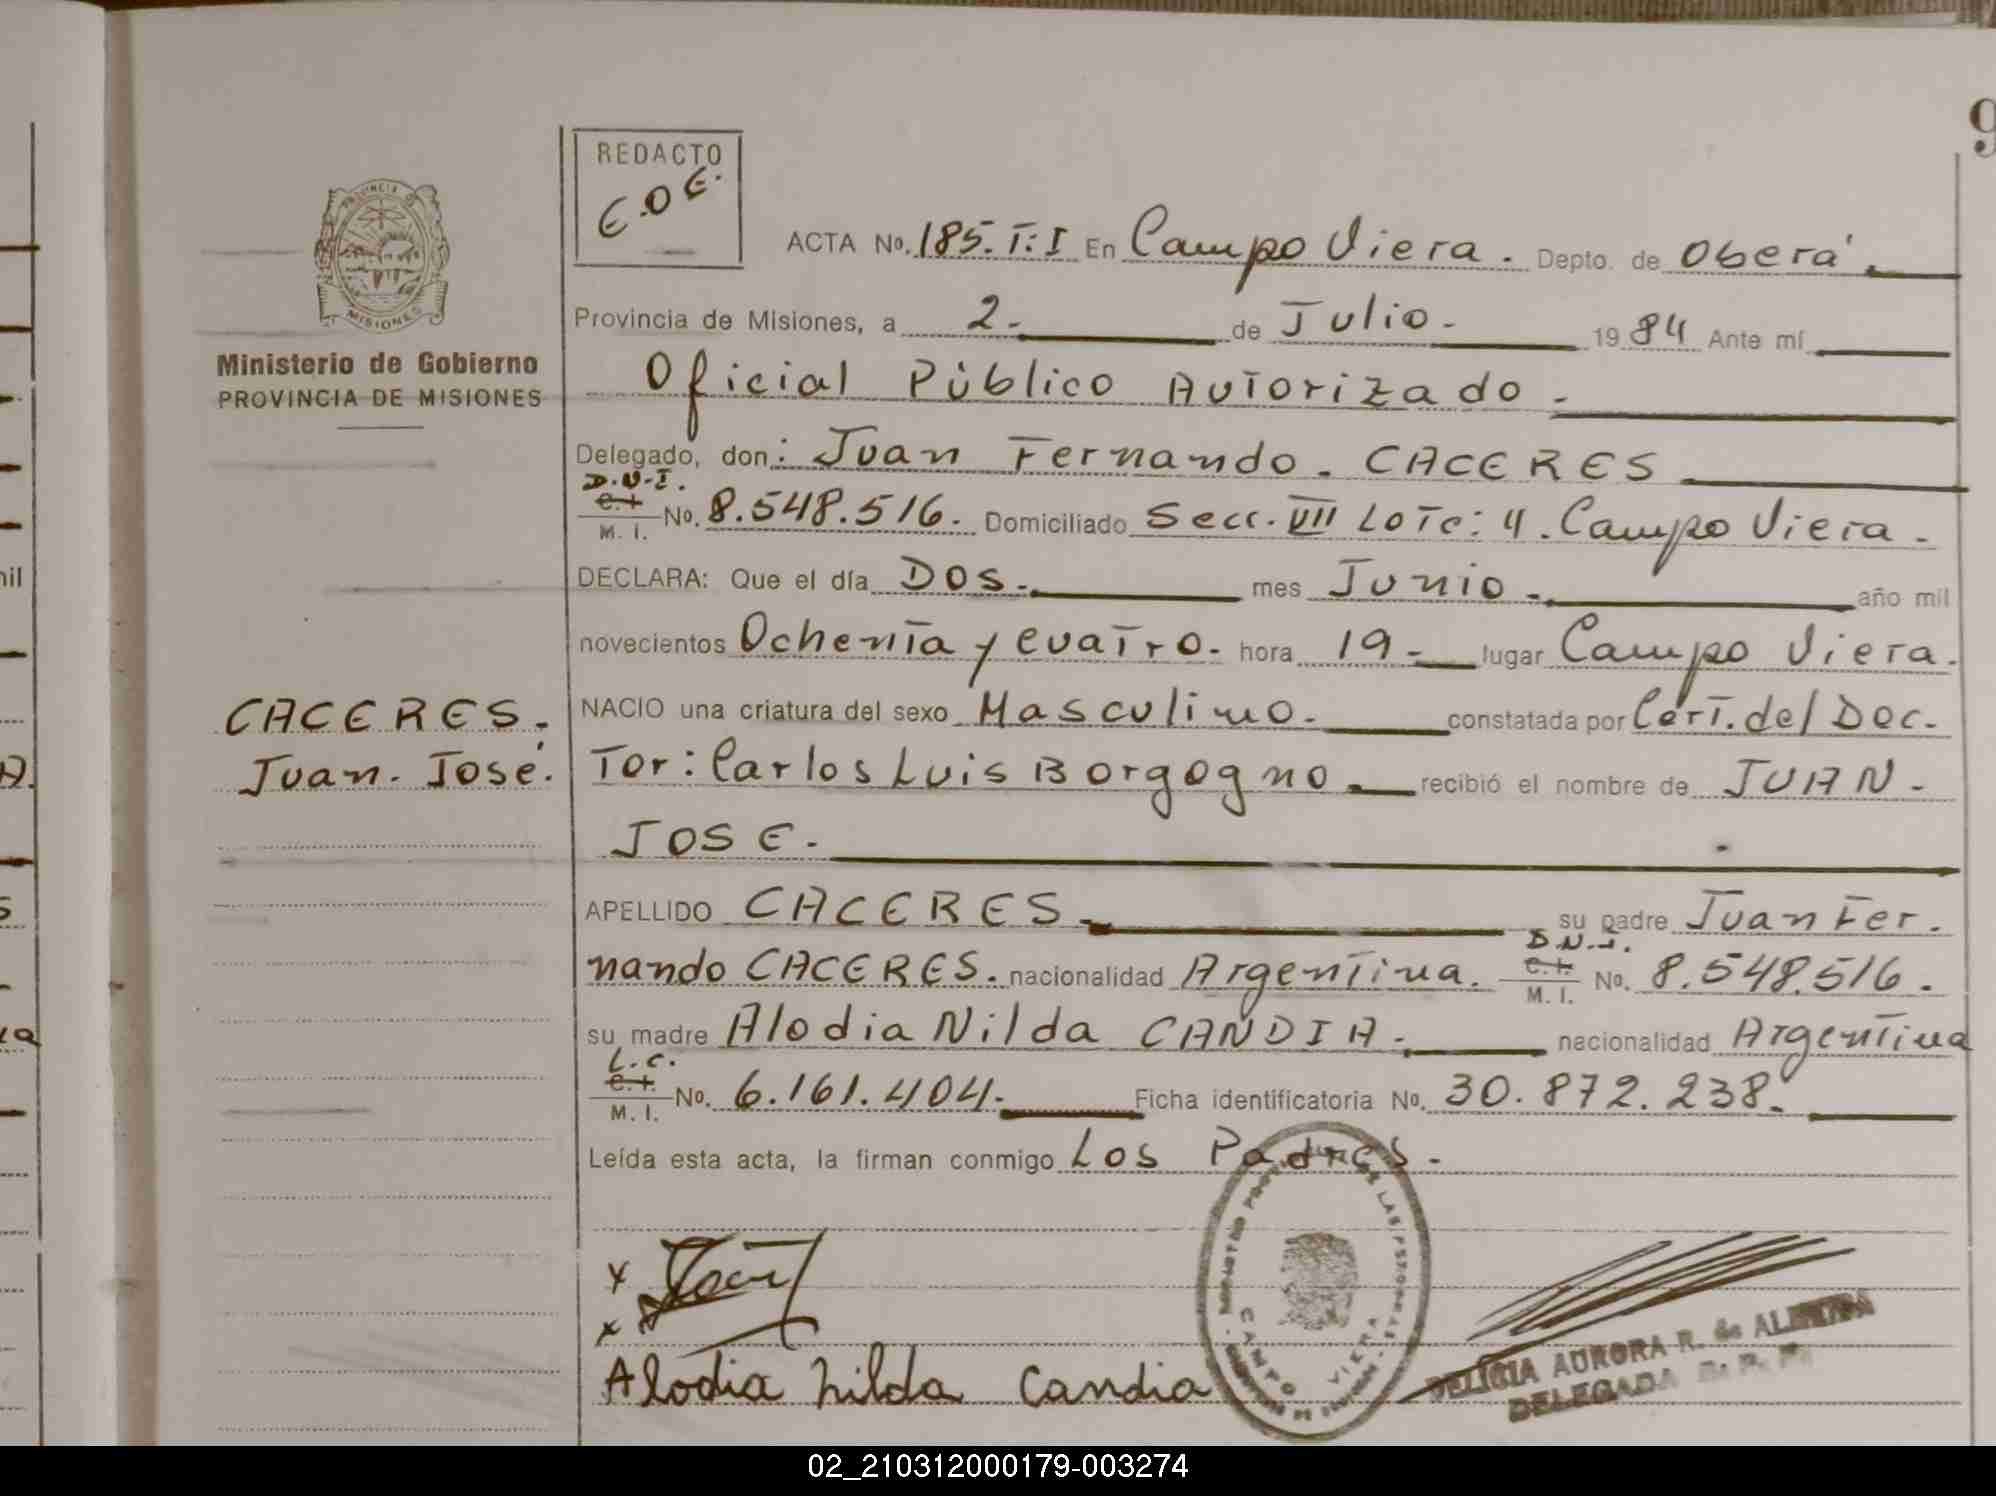 9
REDACTO
E.O.E.
PROVINCIA DE
MISIONES
Ministerio de Gobierno
PROVINCIA DE MISIONES
ACTA No. 185. T: I En Campo Viera. Depto. de Oberá.
Provincia de Misiones, a 2. de Julio. 1984 Ante mí
Oficial Público Autorizado.
Delegado, don: Juan Fernando. CACERES
D.N.I.
C.I.
M. I. No. 8.548.516. Domiciliado Secc. VII Lote: 4. Campo Viera.
DECLARA: Que el día Dos. mes Junio. año mil
novecientos Ochenta y cuatro. hora 19. lugar Campo Viera.
CACERES.
Juan. José.
NACIO una criatura del sexo Masculino. constatada por Cert. del Doc.
Tor: Carlos Luis Borgogno recibió el nombre de JUAN.
JOSE.
APELLIDO CACERES. su padre Juan Fer.
nando CACERES. nacionalidad Argentina. D.N.I. C.I. M. I. No. 8.548.516.
su madre Alodia Nilda CANDIA. nacionalidad Argentina
L.C.
C.I.
M. I. No. 6.161.404. Ficha identificatoria No. 30.872.238.
Leída esta acta, la firman conmigo Los Padres.
x
x
Alodia nilda Candia
CAMPO VIERA
DELICIA AURORA R. de
DELEGADA
nil
02_210312000179-003274